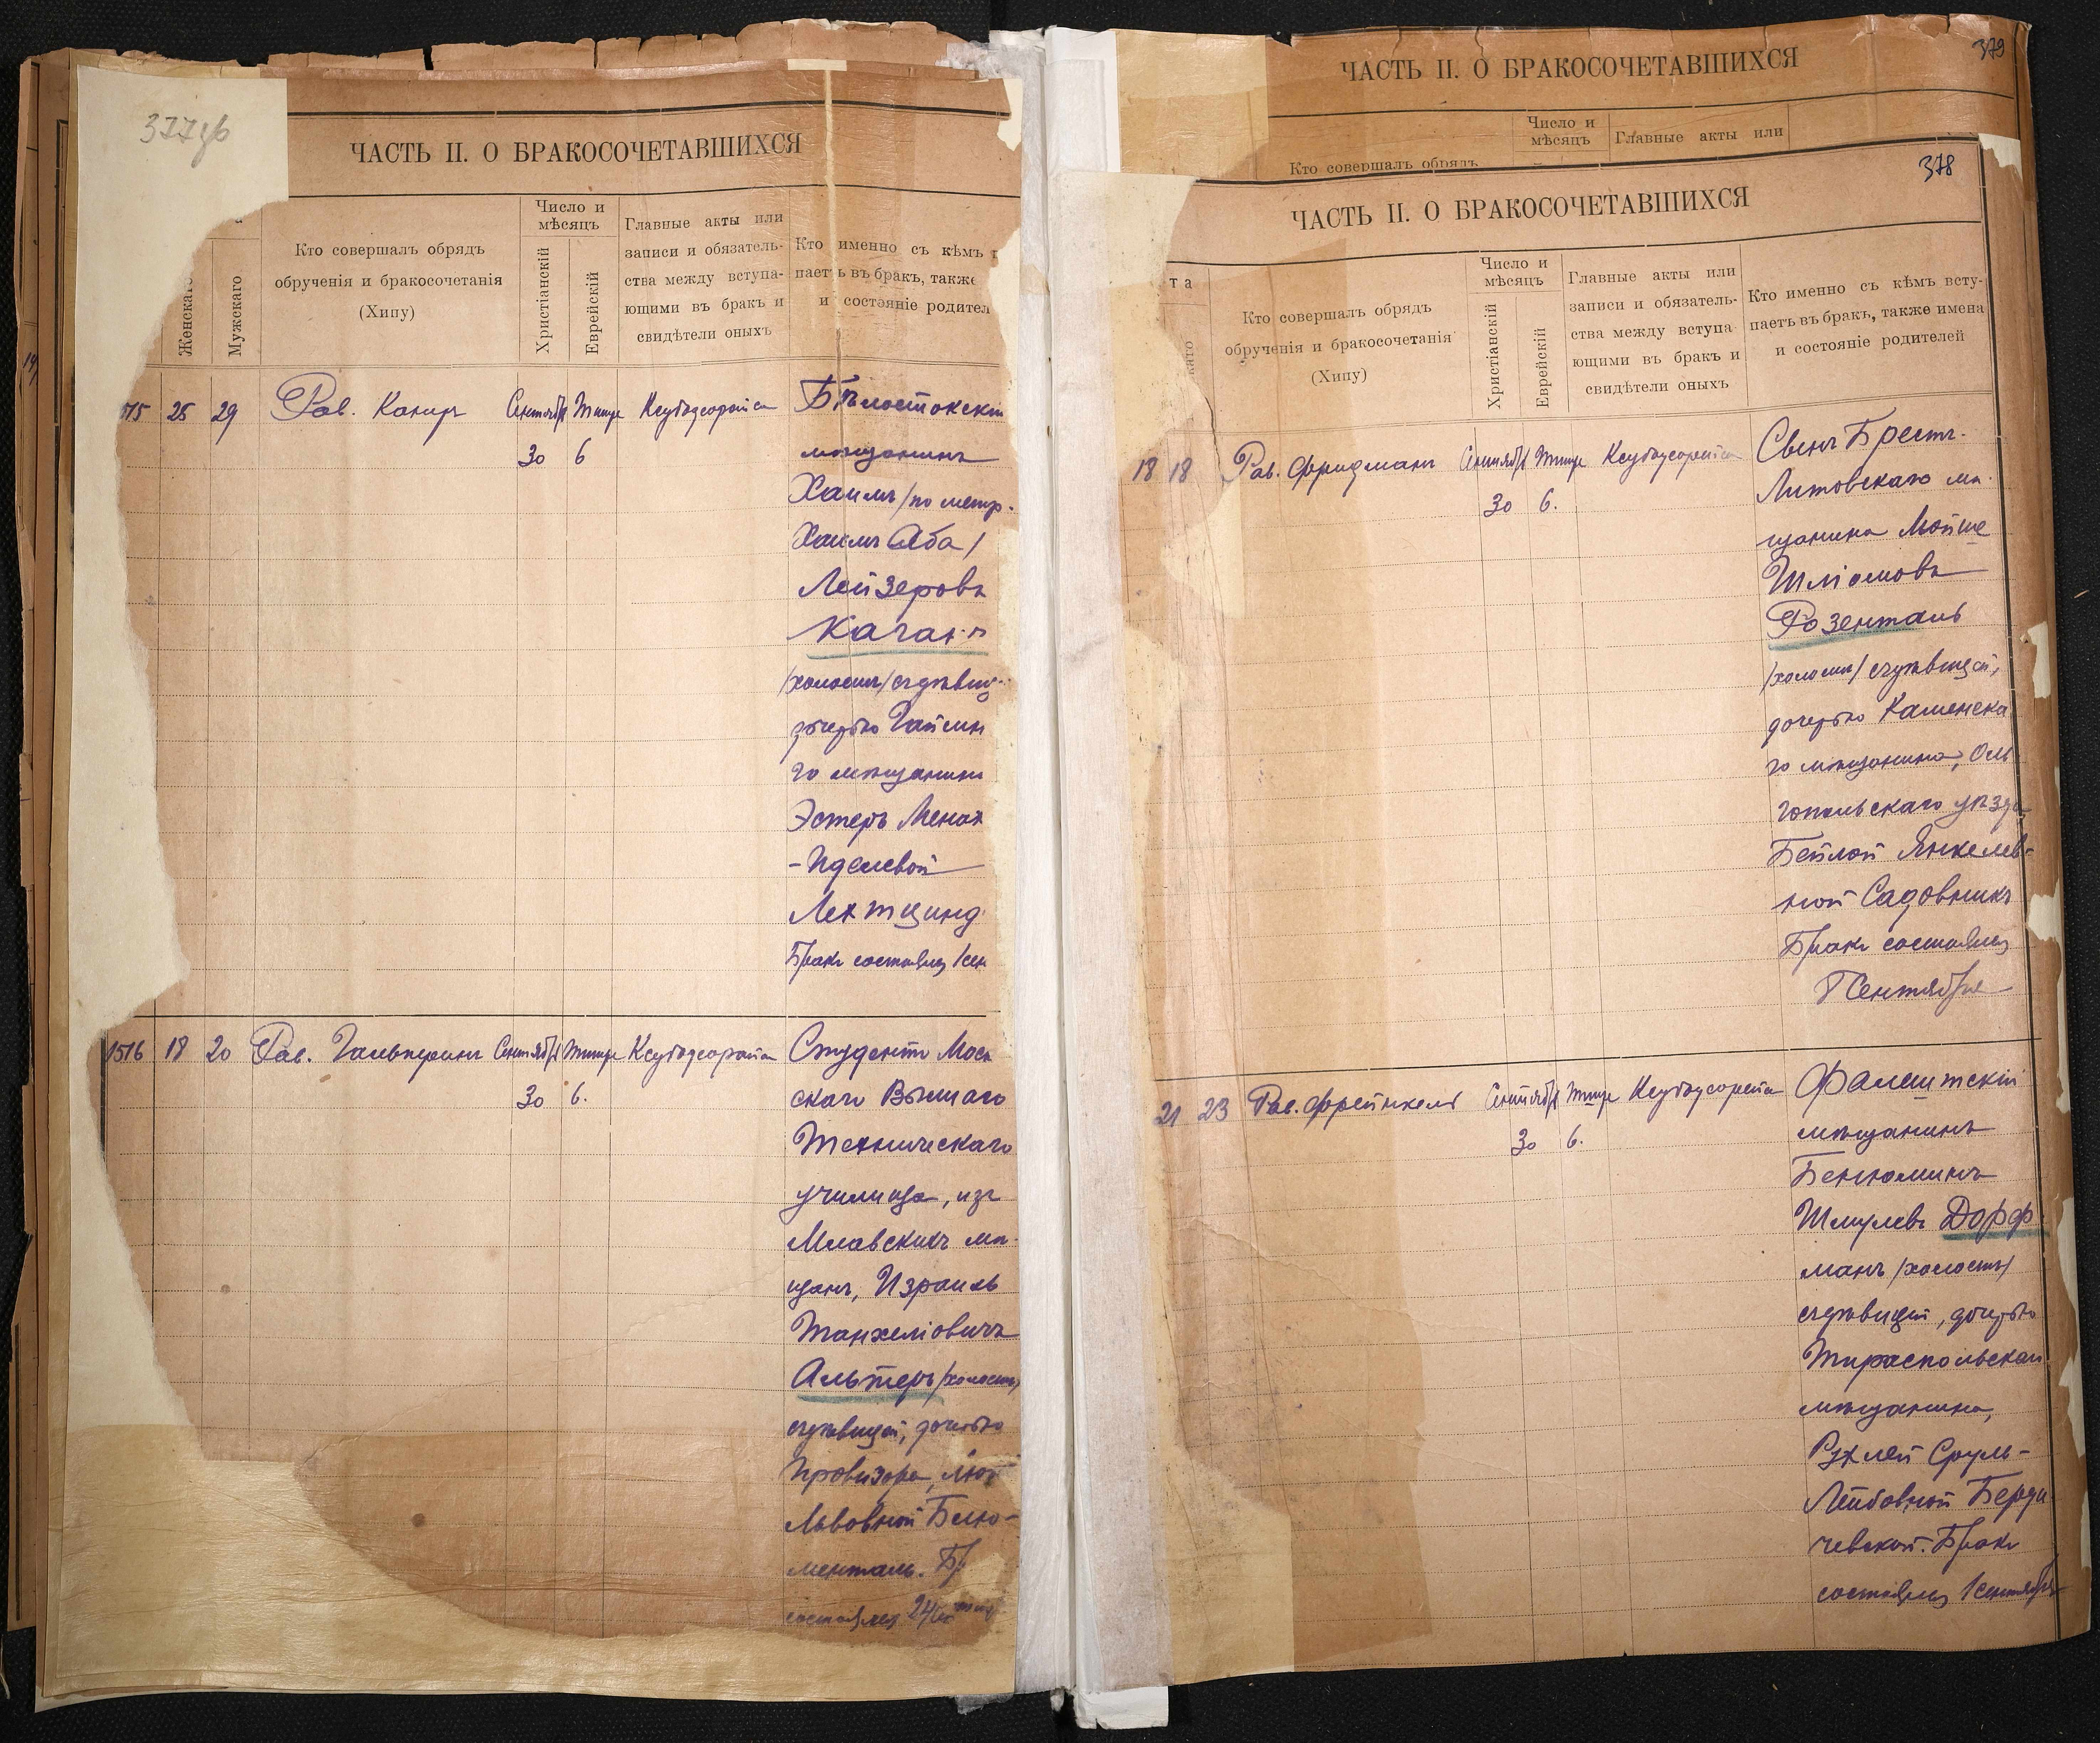 377об
ЧАСТЬ II. О БРАКОСОЧЕТАВШИХСЯ
Женскаго
Мужскаго
Кто совершалъ обрядъ
обрученія и бракосочетанія
(Хипу)
Число и
мѣсяцъ
Христіанскій
Еврейскій
Главные акты или
записи и обязатель-
ства между вступа-
ющими въ бракъ и
свидѣтели оныхъ
Кто именно съ кѣмъ
паетъ въ бракъ, также
и состояніе родител
515 25 29 Рав. Сентября Тишре
30 6
Бѣлостокскій
мѣщанинъ
Хаимъ /по метр.
Хаимъ Аба/
Лейзеровъ
Каганъ
/холостъ/ съ дѣвиц.
дочерью
го мѣщанина
Эстеръ Менах
-Иделевой
Лехтцинд
Бракъ состоялся 1 сен
1516 18 20 Рав. Гальперинъ Сентября Тишре
30 6.
Студентъ Моск
скаго Высшаго
Техническаго
училища, изъ
Млавскихъ мѣ-
щанъ, Израиль
Танхеліовичъ
Альтеръ /холостъ/
съ дѣвицей, дочерью
провизора,
Львовной Блю-
менталь. Бр.
состоялся
379
ЧАСТЬ II. О БРАКОСОЧЕТАВШИХСЯ
Кто совершалъ обрядъ
Число и
мѣсяцъ
Главные акты или
378
ЧАСТЬ II. О БРАКОСОЧЕТАВШИХСЯ
та
Кто совершалъ обрядъ
обрученія и бракосочетанія
(Хипу)
Число и
мѣсяцъ
Христіанскій
Еврейскій
Главные акты или
записи и обязатель-
ства между вступа-
ющими въ бракъ и
свидѣтели оныхъ
Кто именно съ кѣмъ всту-
паетъ въ бракъ, также имена
и состояніе родителей
18 18 Рав. Фридманъ Сентября Тишре
30 6.
Сынъ Брестъ-
Литовскаго мѣ-
щанина Мойше
Шліомовъ
Розенталь
/холостъ/ съ дѣвицей,
дочерью Каменска
го мѣщанина, Оль
гопольскаго уѣзда
Бейлой Янкелев-
ной Садовникъ
Бракъ состоялся
Сентября
21 23 Рав. Френкель Сентября Тишре
30 6.
Фалештскій
мѣщанинъ
Беніоминъ
Шмулевъ Дорф
манъ /холостъ/
съ дѣвицей, дочерью
Тираспольскаго
мѣщанина,
Рухлей Сруль-
Лейбовной Берди
чевской. Бракъ
состоялся 1 сентября